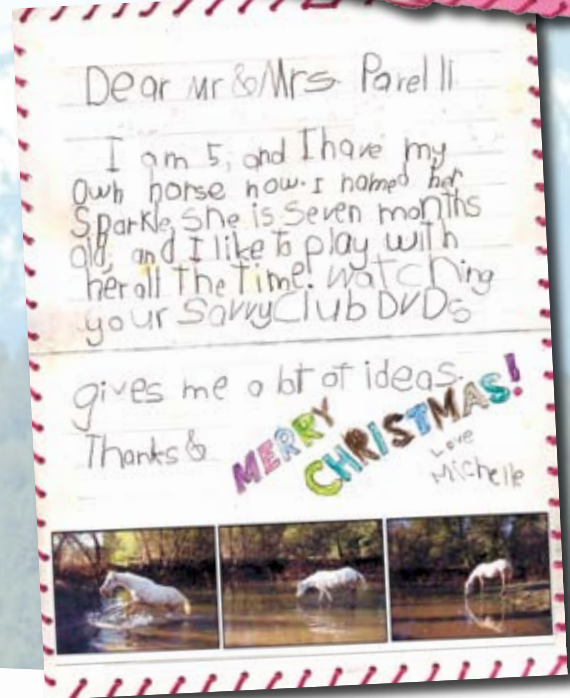 Dear Mr & Mrs. Parelli
I am 5, and I have my
own horse now. I named her
Sparkle, she is seven months
old, and I like to play with
her all the time! watching
your SavvyClub DVDs
gives me a lot of ideas.
Thanks &
MERRY
CHRISTMAS!
Love
Michelle